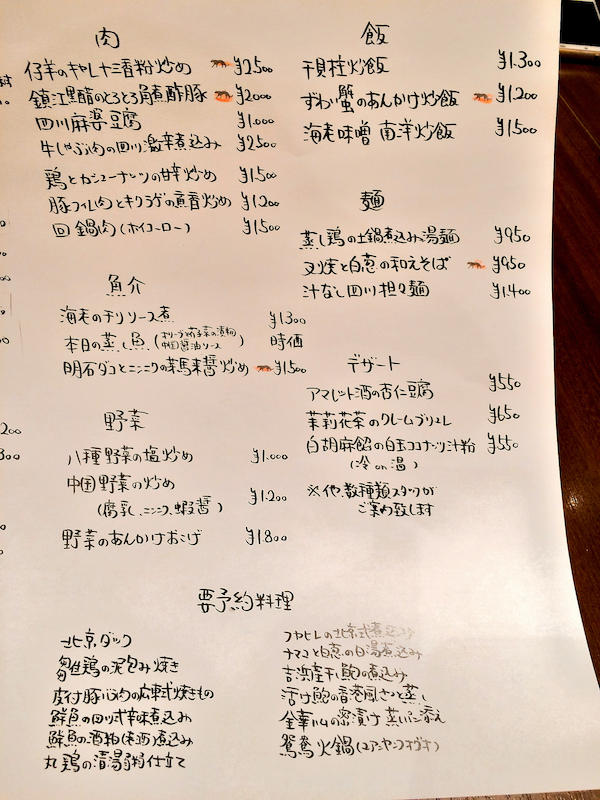 肉
仔羊のキャレ十三香粉炒め ¥2500
鎮江黒酢のとろとろ角煮酢豚 ¥2000
四川麻婆豆腐 ¥1.000
牛しゃぶ肉の四川激辛煮込み ¥2500
鶏とカシューナッツの甘辛炒め ¥1.500
豚フィレ肉とキクラゲの魚香炒め ¥1.200
回鍋肉(ホイコーロー) ¥1.500
魚介
海老のチリソース煮 ¥1300
本日の蒸し魚( 時価
中国醤油ソース)
明石ダコとニンニクの
炒め ¥1500
野菜
八種野菜の塩炒め ¥1.000
中国野菜の炒め
(腐乳、ニンニク、蝦醤) ¥1.200
野菜のあんかけおこげ ¥1.800
飯
干貝柱炒飯 ¥1.300
ずわい蟹のあんかけ炒飯 ¥1.200
海老味噌 南洋炒飯 ¥1.500
麺
蒸し鶏の土鍋煮込み湯麺 ¥950
叉焼と白葱の和えそば ¥950
汁なし四川担々麺 ¥1.400
デザート
アマレット酒の杏仁豆腐 ¥550
茉莉花茶のクレームブリュレ ¥650
白胡麻餡の白玉ココナッツ汁粉 ¥550
(冷 or 温)
※他、数種類スタッフが
ご案内致します
要予約料理
北京ダック
雛鶏の泥包み焼き
皮付豚バラ肉の広東式焼きもの
鮮魚の四川式辛味煮込み
鮮魚の酒粕(老酒)煮込み
丸鶏の清湯粥仕立て
フカヒレの北京式煮込み
ナマコと白葱の白湯煮込み
吉浜産干し鮑の煮込み
活け鮑の香港風さっと蒸し
金華ハムの蜜漬け 蒸しパン添え
鴛鴦火鍋